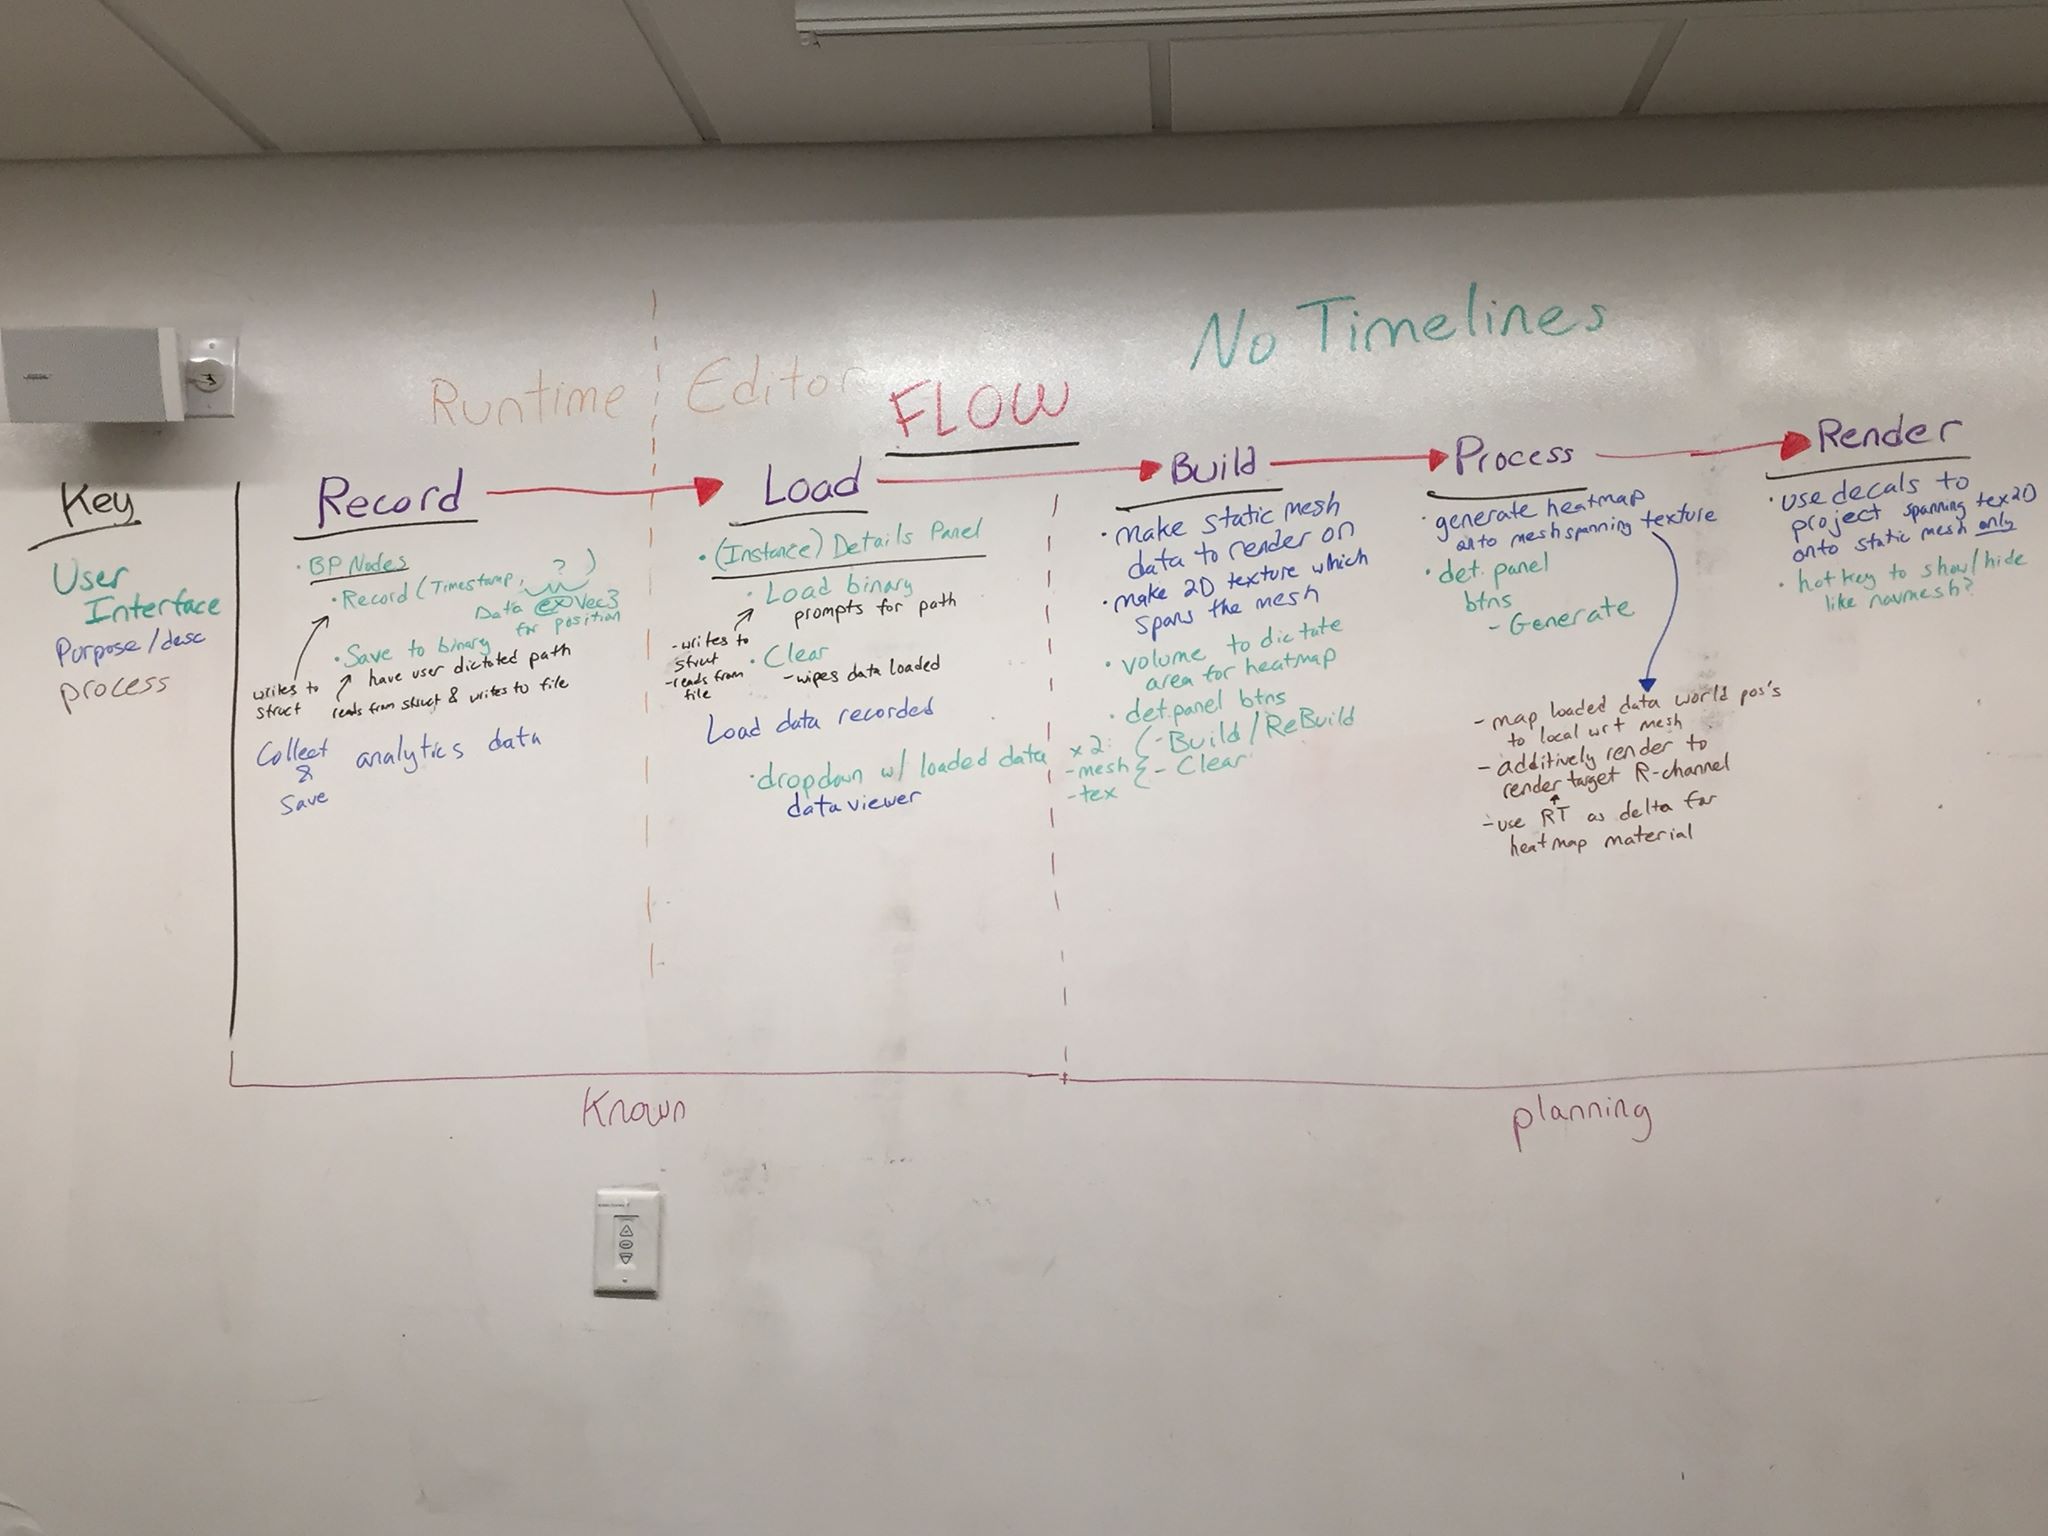 No Timelines
Runtime
Editor
FLOW
Key
User
Interface
Purpose/desc
process
Record
• BP Nodes
• Record (Timestamp, ? )
Data ex Vec3
for position
• Save to binary
have user dictated path
writes to
struct
reads from struct & writes to file
Collect
&
Save
analytics data
Load
• (Instance) Details Panel
• Load binary
prompts for path
- writes to
struct
- reads from
file
• Clear
- wipes data loaded
Load data recorded
• dropdown w/ loaded data
data viewer
Build
• make static mesh
data to render on
• make 2D texture which
spans the mesh
• volume to dictate
area for heatmap
• det. panel btns
x2:
- mesh
- tex
- Build/ReBuild
- Clear
Process
• generate heatmap
onto mesh spanning texture
• det. panel
btns
- Generate
- map loaded data world pos's
to local wrt mesh
- additively render to
render target R-channel
- use RT as delta for
heatmap material
Render
• use decals to
project spanning tex2D
onto static mesh only
• hotkey to show/hide
like navmesh?
Known
planning